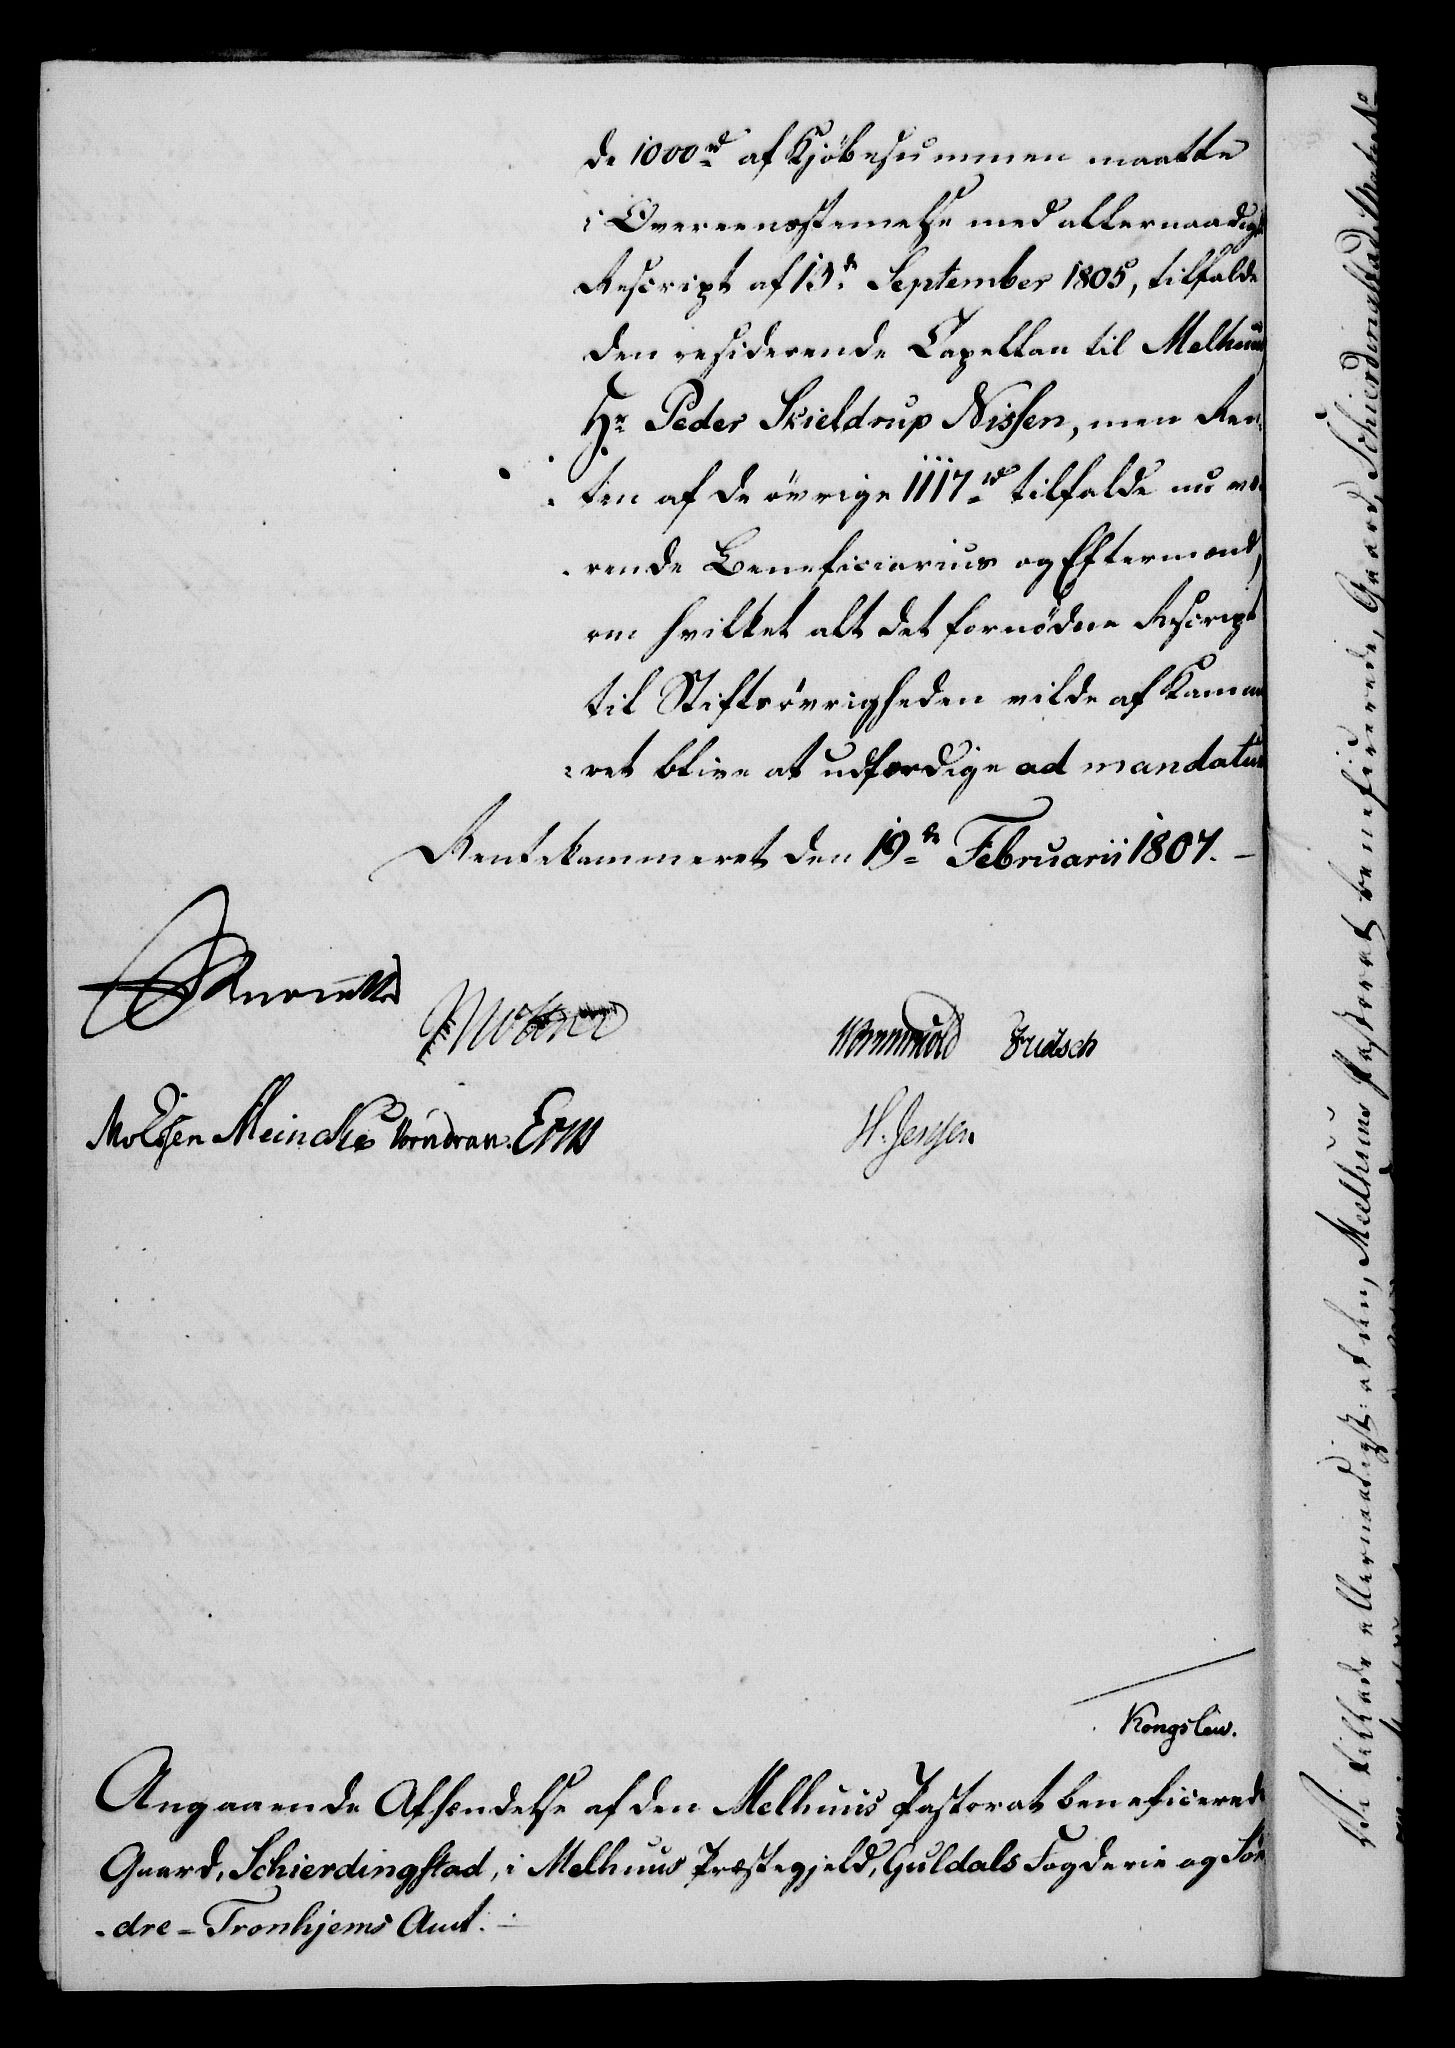 de 1000 rd af Kjöbesummen maatte
i Overeensstemelse med allernaadigst
Rescript af 13de September 1805, tilfalde
den residerende Capellan til Melhuus
Hr Peder Skieldrup Nissen, men Ren-
ten af de övrige 1117 rd tilfalde nu væ-
rende Beneficiarius og Eftermænd,
om hvilket alt det fornödne Rescript
til Stiftsövrigheden vilde af Kamme
-ret blive at udfærdige ad mandatum
Rentekammeret den 19de Februarii 1807.
Wormskiold Fridsch
Meincke Vorndran
H. Jensen
Kongslew.
Angaaende Afhændelse af den Melhuus Pastorat beneficerede
Gaard, Schierdingstad, i Melhuus Præstegjeld, Guldals Fogderie og Sön
-dre-Tronhjems Amt.
Vi tillade allernaadigst: at den, Melhuus Pastorat beneficerede, Gaard, Schierdingstad